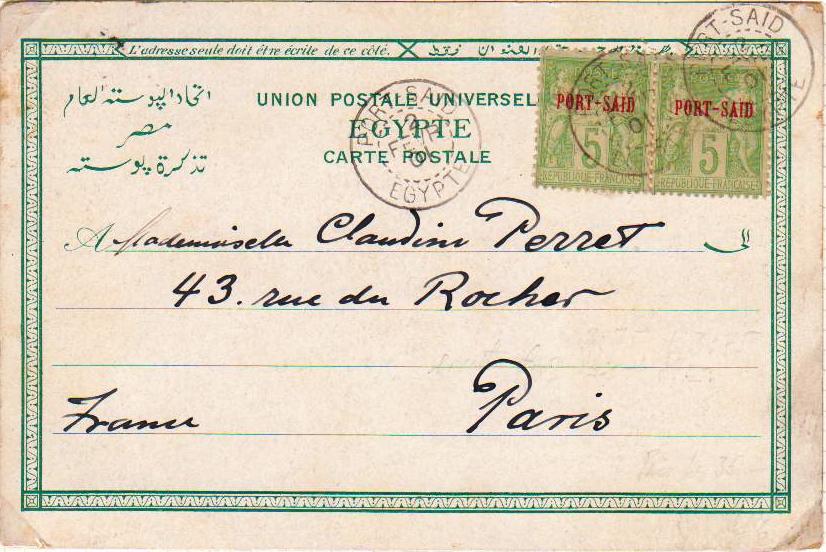 L'adresse seule doit être écrite de ce côté.
اتحاد البوسته العام
مصر
تذكرة بوسته
UNION POSTALE UNIVERSEL
EGYPTE
CARTE POSTALE
PORT-SAID
2
FEVR
01
EGYPTE
PORT-SAID
5
REPUBLIQUE FRANCAISE
PORT-SAID
5
REPUBLIQUE FRANCAISE
PORT-SAID
01
A Mademoiselle Claudine Perret الى
43. rue du Rocher
Paris
France